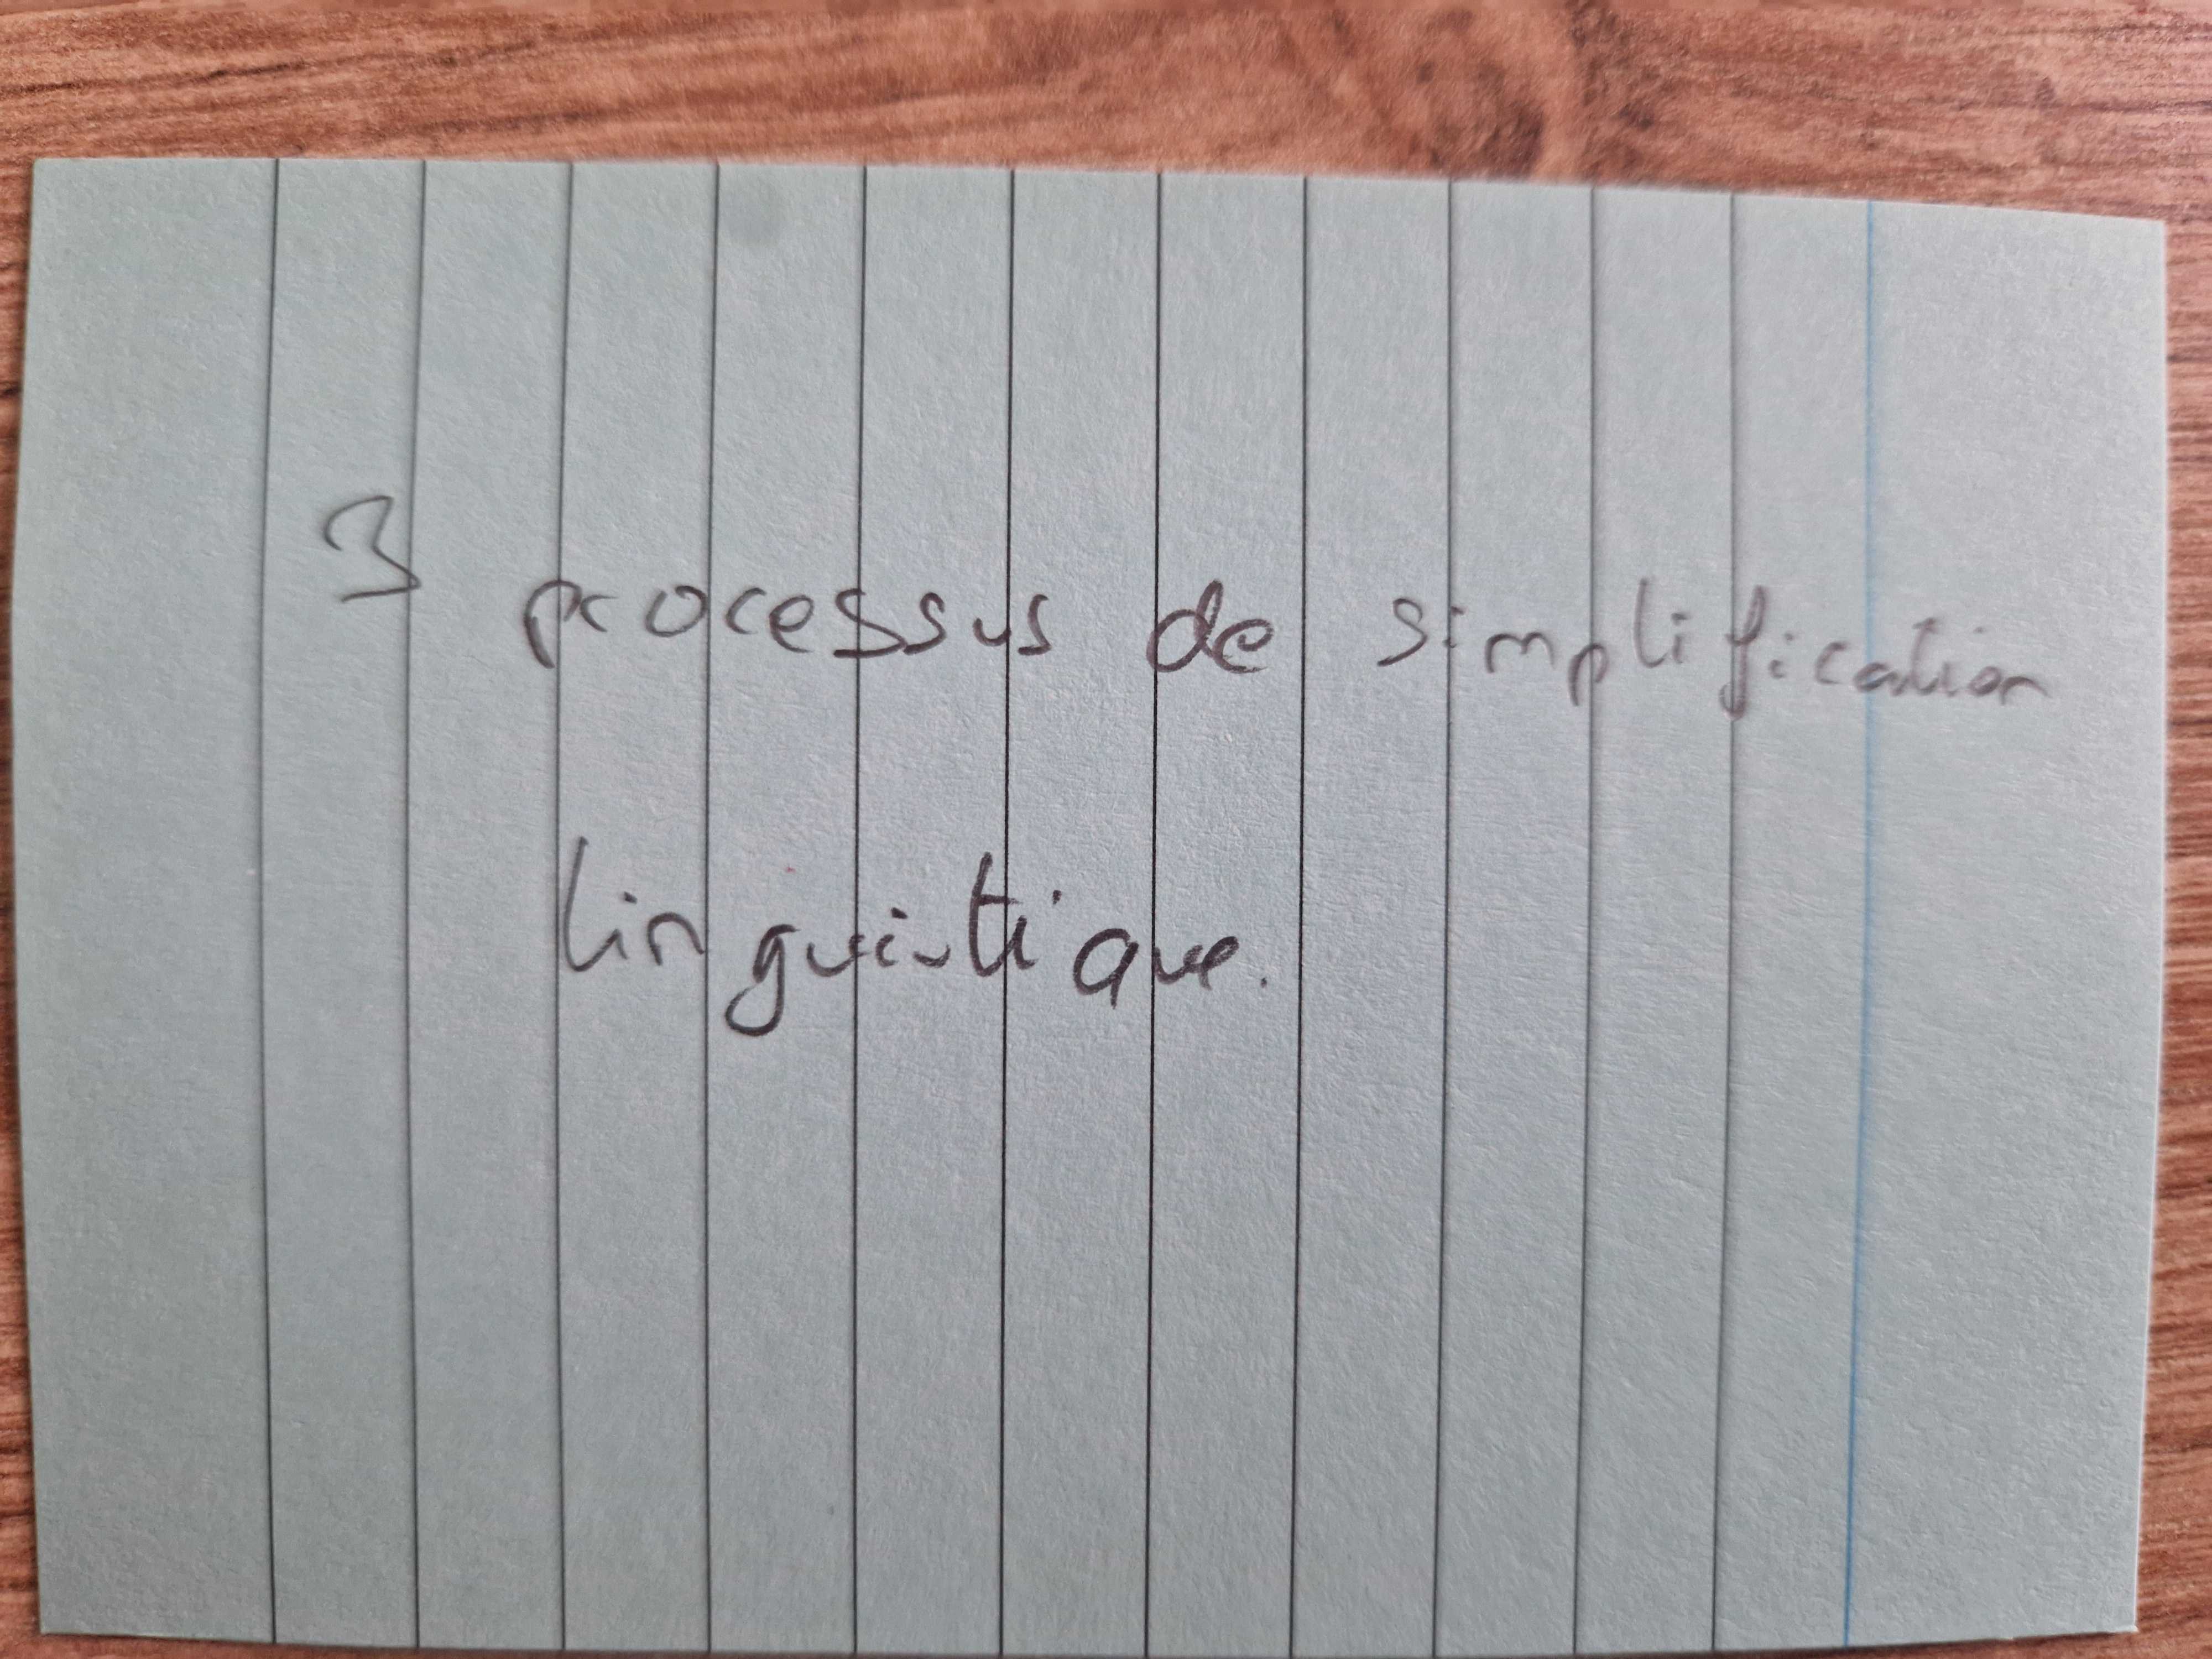 3 processus de simplification
linguistique.